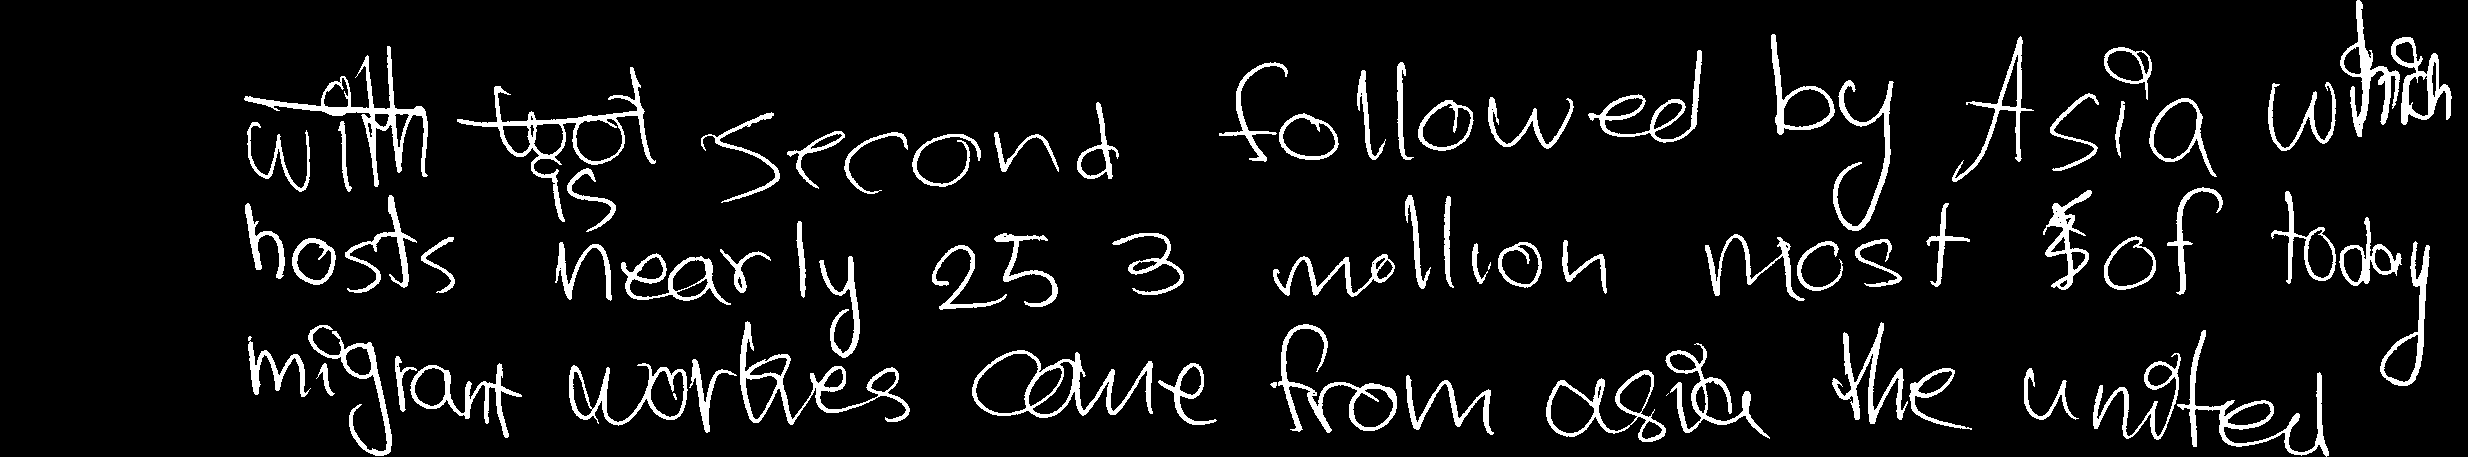 is second followed by Asia which
hosts nearly 25 3 million most of today
migrant workes come from asia the united